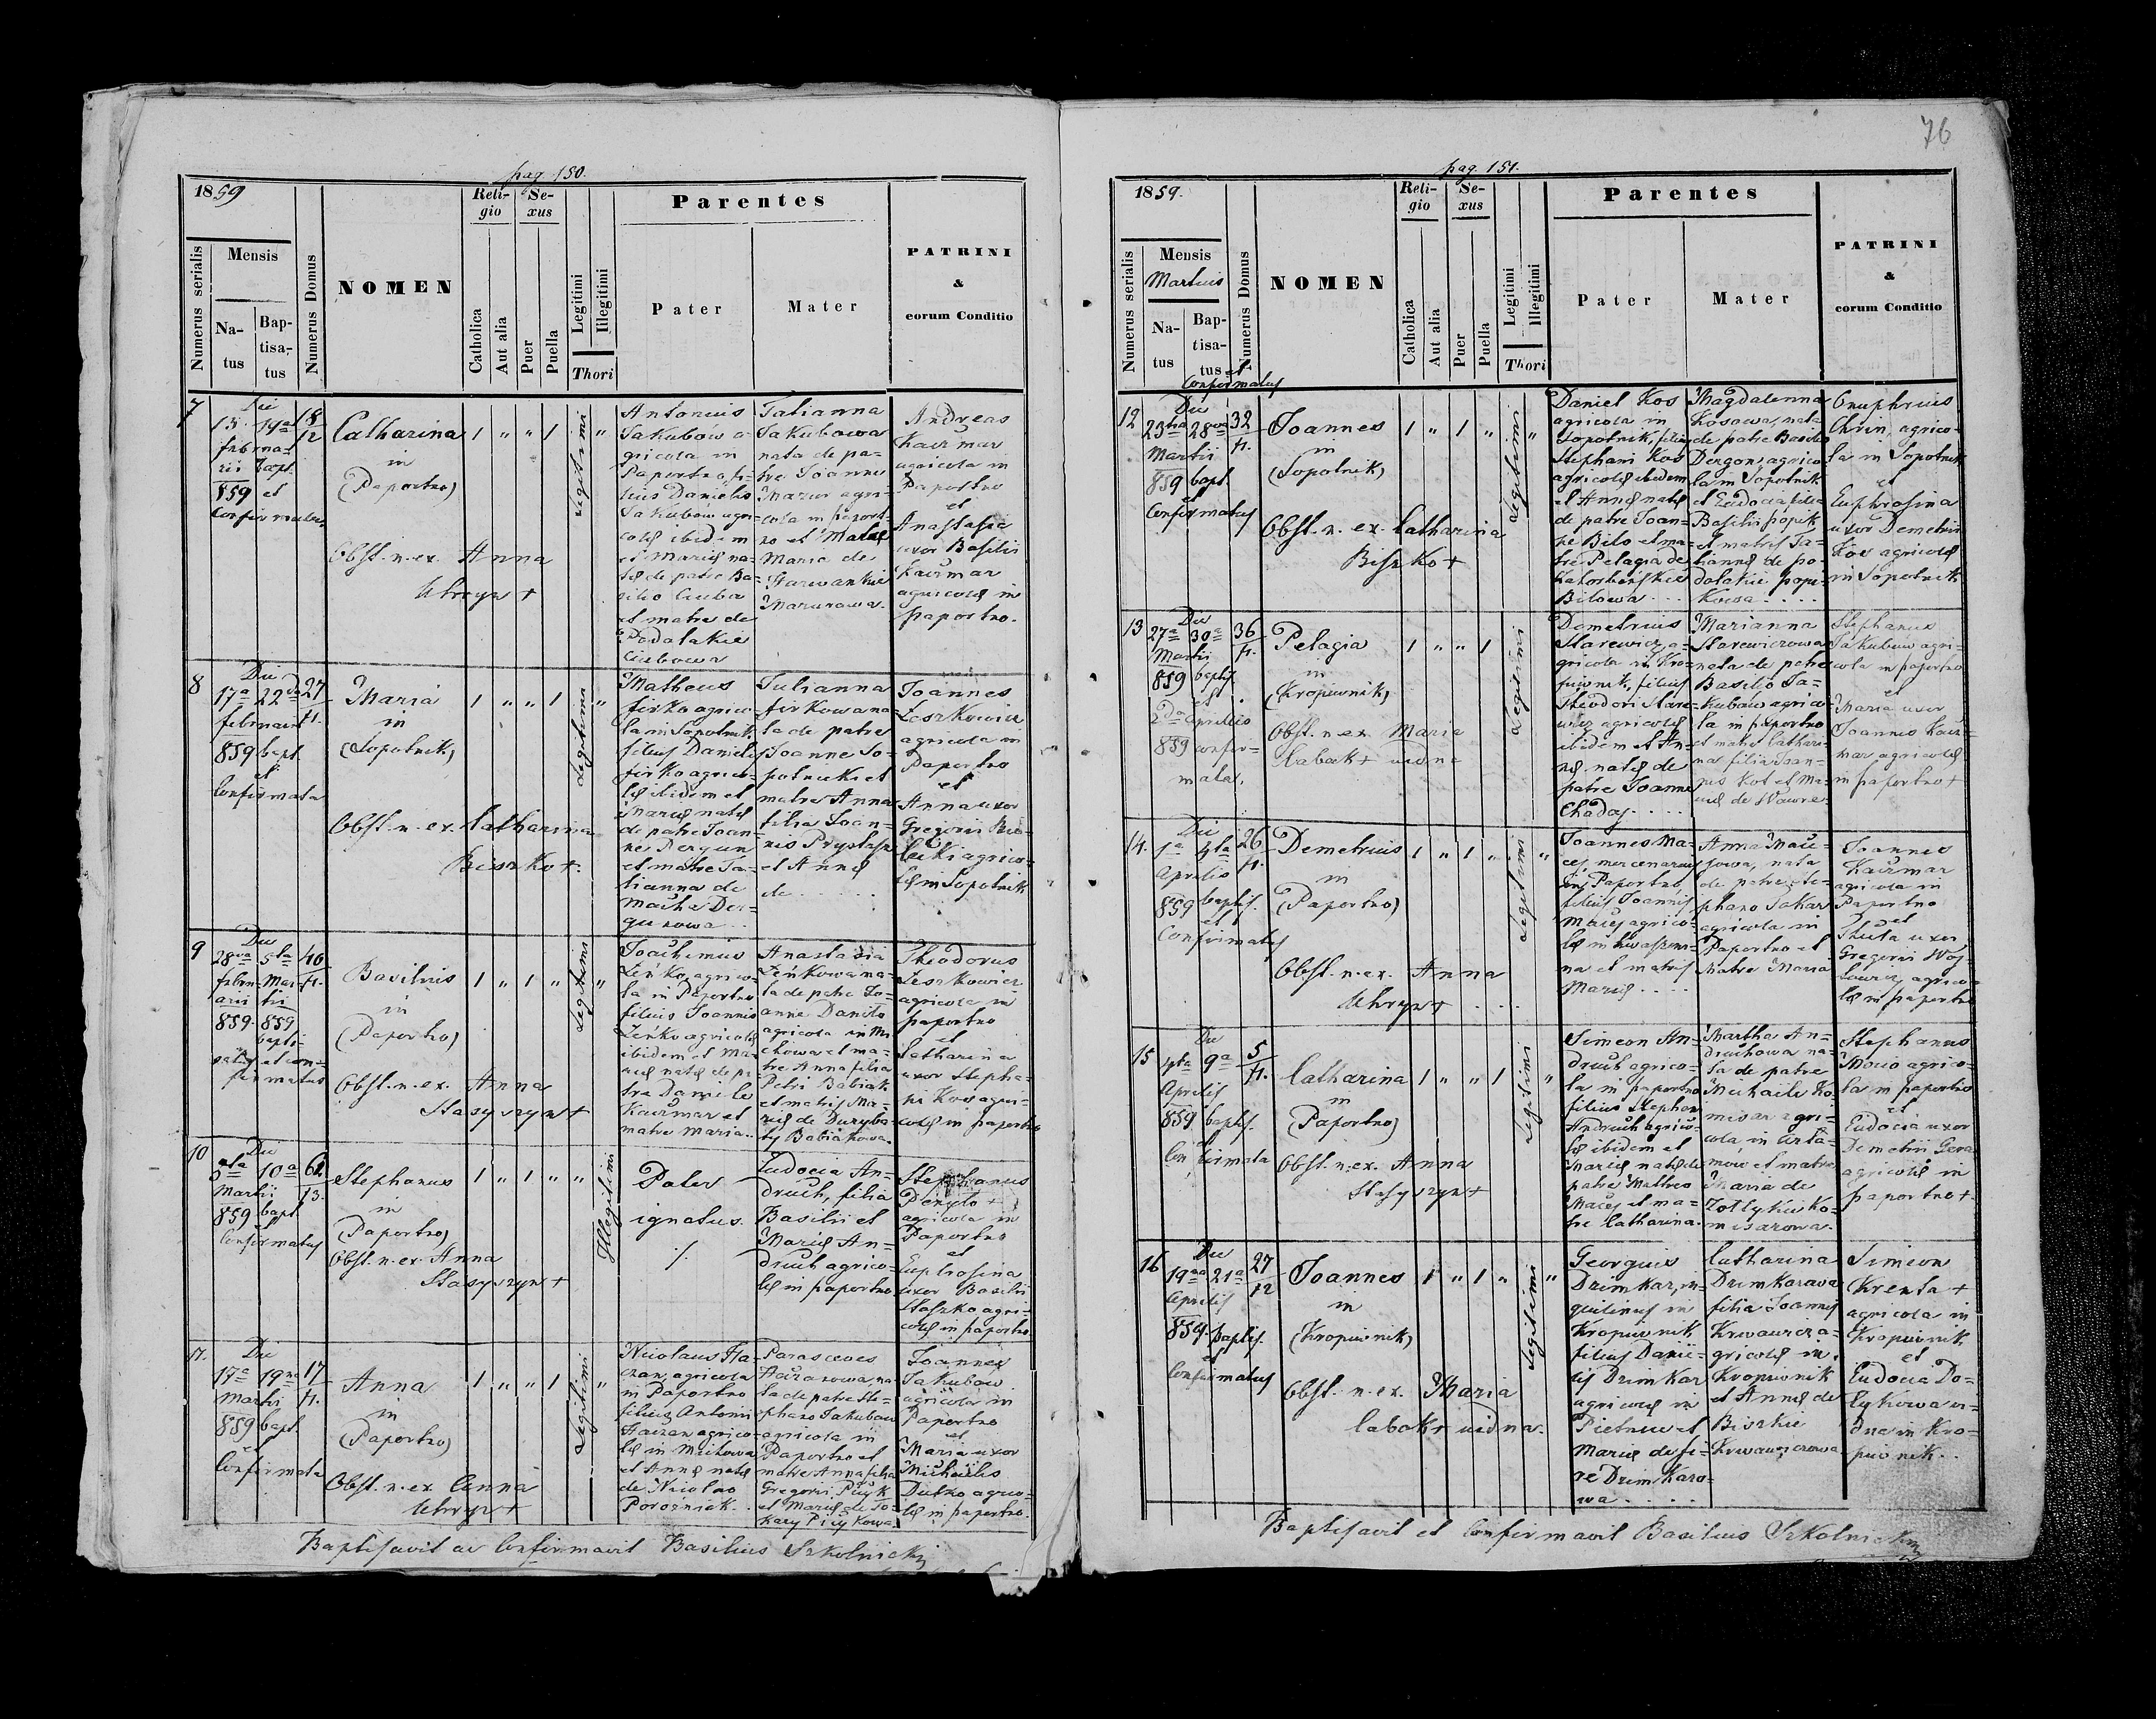 76
pag. 150.
1859
Numerus serialis
Mensis
Na-
tus
Bap-
tisa-
tus
Numerus Domus
NOMEN
Reli-
gio
Catholica
Aut alia
Se-
xus
Puer
Puella
Legitimi
Illegitimi
Thori
Parentes
Pater
Mater
PATRINI
&
eorum Conditio
7
Die
15. 19a
februa-
rii bapt.
859 et
Confirmata
18
12
Catharina
in
(Paportno)
Obst. n. ex. Anna
Uhryn +
1 " " 1
Legitimi
"
Antonius
Jakubów a-
gricola in
Paportno, fi-
lius Danielis
Jakubów agri-
colæ ibidem
et Mariæ na-
tæ de patre Ba-
silio Ciuba
et matre de
Podolakie
Ciubowa
Tatianna
Jakubowa
nata de pa-
tre Joanne
Mazur agri-
cola in paport-
no et Matre
Maria de
Mazurowa.
Andreas
Kaczmar
agricola in
Paportno
et
Anastasia
uxor Basilii
Kaczmar
agricolæ in
paportno.
8
Die
17a 22da
februarii
859 bapt.
et
Confirmata
27
fl.
Maria
in
(Sopotnik)
Obst. n. ex. Catharina
Biszko +.
1 " " 1
Legitimi
"
Matheus
firko agrico-
la in Sopotnik
filius Danielis
firko agrico-
læ ibidem et
Mariæ natæ
de patre Joan-
ne Dergun
et matre Ta-
tianna de
Macha Der-
gunowa..
Julianna
firkowa na-
ta de patre
Joanne So-
potnicki et
matre Anna
filia Joan-
nis Prystasz
et Annæ
de . . . . .
Joannes
Leszkowicz
agricola in
Paportno
et
Anna uxor
Gregorii
agrico-
læ in Sopotnik
9
Die
28va 5ta
febru- Mar-
arii tii
859. 859
bapti-
satus et con-
firmatus
40
fl.
Basilius
in
(Paportno)
Obst. n. ex. Anna
Stasyszyn +
1 " 1 "
Legitimi
"
Joachimus
Zeńko, agrico-
la in Paportno
filius Joannis
Zeńko agricolæ
ibidem et Ma-
riæ natæ de pa-
tre Daniele
Kaczmar et
matre Maria..
Anastasia
Zeńkowa na-
ta de patre Jo-
anne Daniło
agricola in Mi-
chowa et ma-
tre Anna filia
Petri Babiak
et matris Ma-
riæ de Duryba-
by Babiakowa.
Theodorus
Leszkowicz
agricola in
paportno
et
Catharina
uxor Stepha-
ni Kos agri-
colæ in paportno
10
Die
5ta 10a
Martii
859 bapt.
Confirmatus
62
13.
Stephanus
in
(Paportno)
Obst. n. ex. Anna
Stasyszyn +
1 " 1 " "
Illegitimi
Pater
ignotus.
./.
Eudocia An-
druch, filia
Basilii et
Mariæ An-
druch agrico-
læ in paportno
Stephanus
Denyło +
agricola in
Paportno
et
Euphrosina
uxor Basilii
Staszko agri-
colæ in paportno.
11.
Die
17a 19na
Martii
859 bapt.
et
Confirmata
17
fl.
Anna
in
(Paportno)
Obst. n. ex. Anna
Uhryn +
1 " " 1
Legitimi
"
Nicolaus Ha-
czan, agricola
in Paportno
filius Antonii
Haczan agrico-
læ in Michowa
et Annæ natæ
de Nicolao
Porożniak..
Parasceves
Haczanowa, na-
ta de patre Ste-
phano Jakubów
agricola in
Paportno et
matre Anna filia
Gregorii Picyk
et Mariæ de To-
kary Picykowa.
Joannes
Jakubów
agricola in
Paportno
et
Maria uxor
Michaelis
Dutko agrico-
læ in paportno.
Baptisavit ac Confirmavit Basilius Szkolnicki
pag. 151.
1859.
Numerus serialis
Mensis
Martius
Na-
tus
Bap-
tisa-
tus et
Confirmatus
Numerus Domus
NOMEN
Reli-
gio
Catholica
Aut alia
Se-
xus
Puer
Puella
Legitimi
Illegitimi
Thori
Parentes
Pater
Mater
PATRINI
&
eorum Conditio
12
Die
23tia 28va
Martii
859 bapt.
et
Confirmatus
32
fl.
Joannes
in
(Sopotnik)
Obst. n. ex. Catharina
Biszko +
1 " 1 "
Legitimi
"
Daniel Kos
agricola in
Sopotnik, filius
Stephani Kos
agricolæ ibidem
et Annæ natæ
de patre Joan-
ne Biło et ma-
tre Pelagia de
Biłowa...
Magdalenna
Kosowa, nata
de patre Basilio
Dergon agrico-
la in Sopotnik
et Eudocia filia
Basilii popik
et matris Ta-
tiannæ de po-
dolakie popi-
kowa . . . .
Onuphrius
agrico-
la in Sopotnik
et
Euphrosina
uxor Demetrii
Kos agricolæ
in Sopotnik
13
Die
27a 30a
Martii
859 baptis.
et
2da Aprilis
859 confir-
mata.
36
fl.
Pelagia
in
(Kropiwnik)
Obst. n. ex. Maria
Cabak + vidna
1 " " 1
Legitimi
Demetrius
Starewicz, a-
gricola in Kro-
piwnik, filius
Theodori Stare-
wicz agricolæ
ibidem et An-
næ natæ de
patre Joanne
Chaday....
Marianna
Starewiczowa
nata de patre
Basilio Ja-
kubów agrico-
la in paportno
et matre Cathari-
na filia Joan-
nis Kos et Ma-
riæ de Wawre
Stephanus
Jakubów agri-
cola in paportno
et
Maria uxor
Joannis Kacz-
mar agricolæ
in paportno +
14.
Die
1a 4ta
Aprilis
859 baptis.
et
Confirmatus
26
fl.
Demetrius
in
(Paportno)
Obst. n. ex. Anna
Uhryn + . . .
1 " 1 "
Legitimi
"
Joannes Ma-
cej mercenarius
in Paportno,
filius Joannis
Macej agrico-
læ in
na et matris
Mariæ . . . .
Anna Mace-
jowa, nata
de patre Ste-
phano Sakar
agricola in
Paportno et
Matre Maria
Joannes
Kaczmar
agricola in
Paportno
et
Thecla uxor
Gregorii Woj-
towicz agrico-
læ in paportno
15
Die
4ta 9a
Aprilis
859 baptis.
Confirmata
5
fl.
Catharina
in
(Paportno)
Obst. n. ex. Anna
Stasyszyn +
1 " " 1
Legitimi
"
Simeon An-
druch agrico-
la in paportno
filius Stephani
Andruch agrico-
læ ibidem et
Mariæ natæ de
patre Matheo
Macej et ma-
tre Catharina.
Martha An-
druchowa na-
ta de patre
Michaile Ko-
misar agri-
cola in Arła-
mów et matre
Maria de
Zołtyki Ko-
misarowa.
Stephanus
agrico-
la in paportno
et
Eudocia uxor
Demetrii Gera
agricolæ in
paportno +.
16
Die
19na 21a
Aprilis
859. baptis.
et
Confirmatus
27
12
Joannes
in
(Kropiwnik)
Obst. n. ex. Maria
Cabak + vidna.
1 " 1 "
Legitimi
"
Georgius
Dzimkar, in-
quilinus in
Kropiwnik
filius Danie-
lis Dzimkar
agricolæ in
et
Mariæ de fi-
re Dzimkaro-
wa . . . . .
Catharina
Dzimkarowa
filia Joannis
Krwawicz a-
gricolæ in
Kropiwnik
et Annæ de
Biszkie
Krwawiczowa
Simeon
Krenta +
agricola in
Kropiwnik
et
Eudocia Do-
lykowa vi-
dna in Kro-
piwnik..
Baptisavit et Confirmavit Basilius Szkolnicki